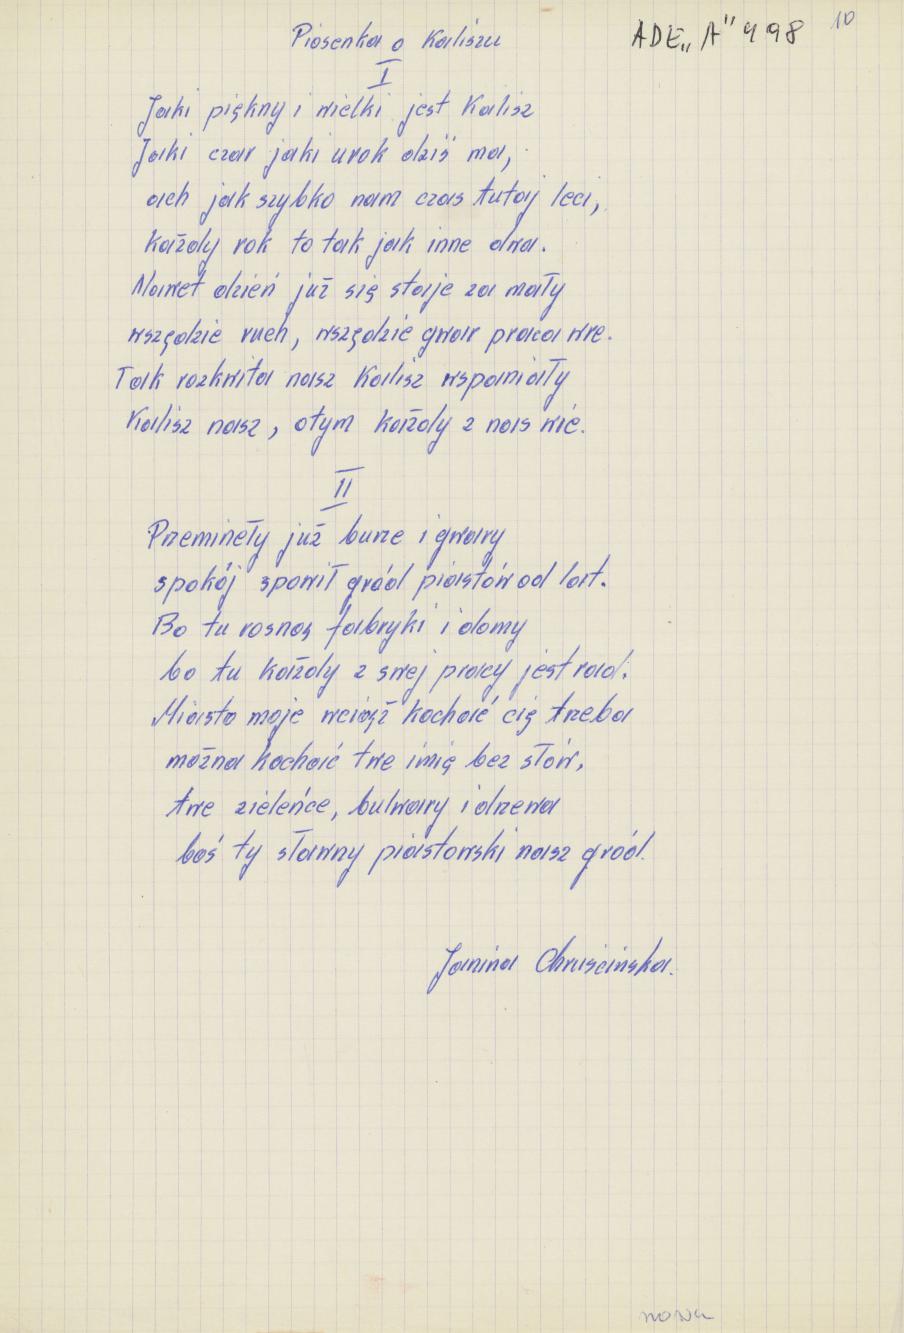 Piosenka o Kaliszu
ADE „A" 498
10
I
Jaki piękny i wielki jest Kalisz
Jaki czar jaki urok dziś ma,
ach jak szybko nam czas tutaj leci,
każdy rok to tak jak inne dwa.
Nawet dzień już się staje za mały
wszędzie ruch, wszędzie gwar praca wre.
Tak rozkwita nasz Kalisz wspaniały
Kalisz nasz, otym każdy z nas wie.
II
Przeminęły już burze i gwary
spokój spowił gród piastów od lat.
Bo tu rosnąą fabryki i domy
bo tu każdy z swej pracy jest rad.
Miasto moje wciąż kochać cię trzeba
można kochać twe imię bez słów,
twe zieleńce, bulwary i drzewa
boś ty sławny piastowski nasz gród.
Janina Chruścińska.
nowa